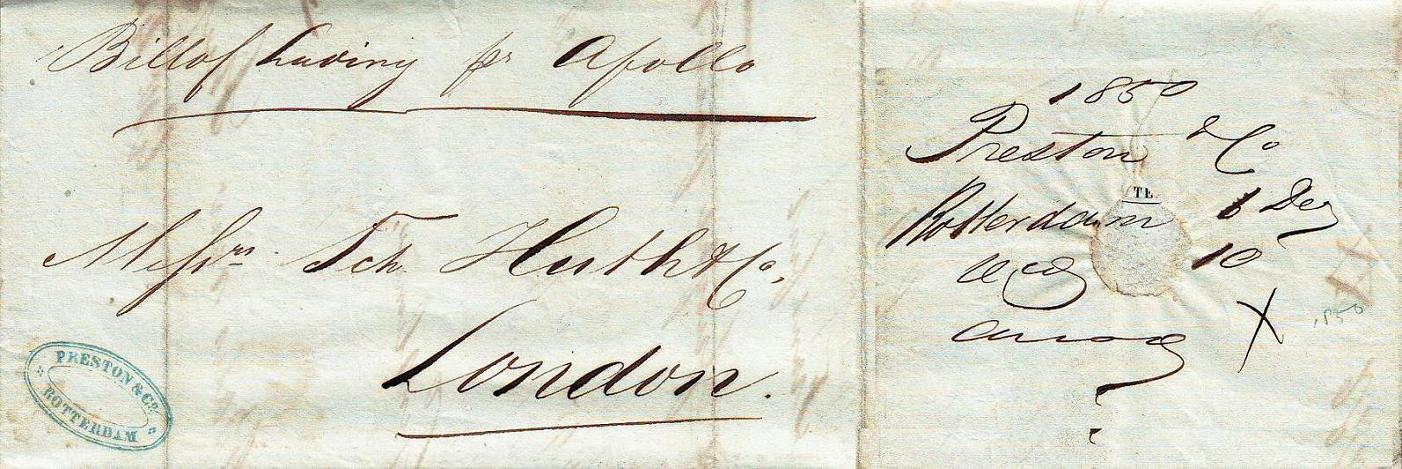 Bill of Lading pr Apollo
Messrs. Fch Huth & Co,
London.
PRESTON & Co.
ROTTERDAM
1850
Preston & Co
Rotterdam 6 Dec
10
TE
1850